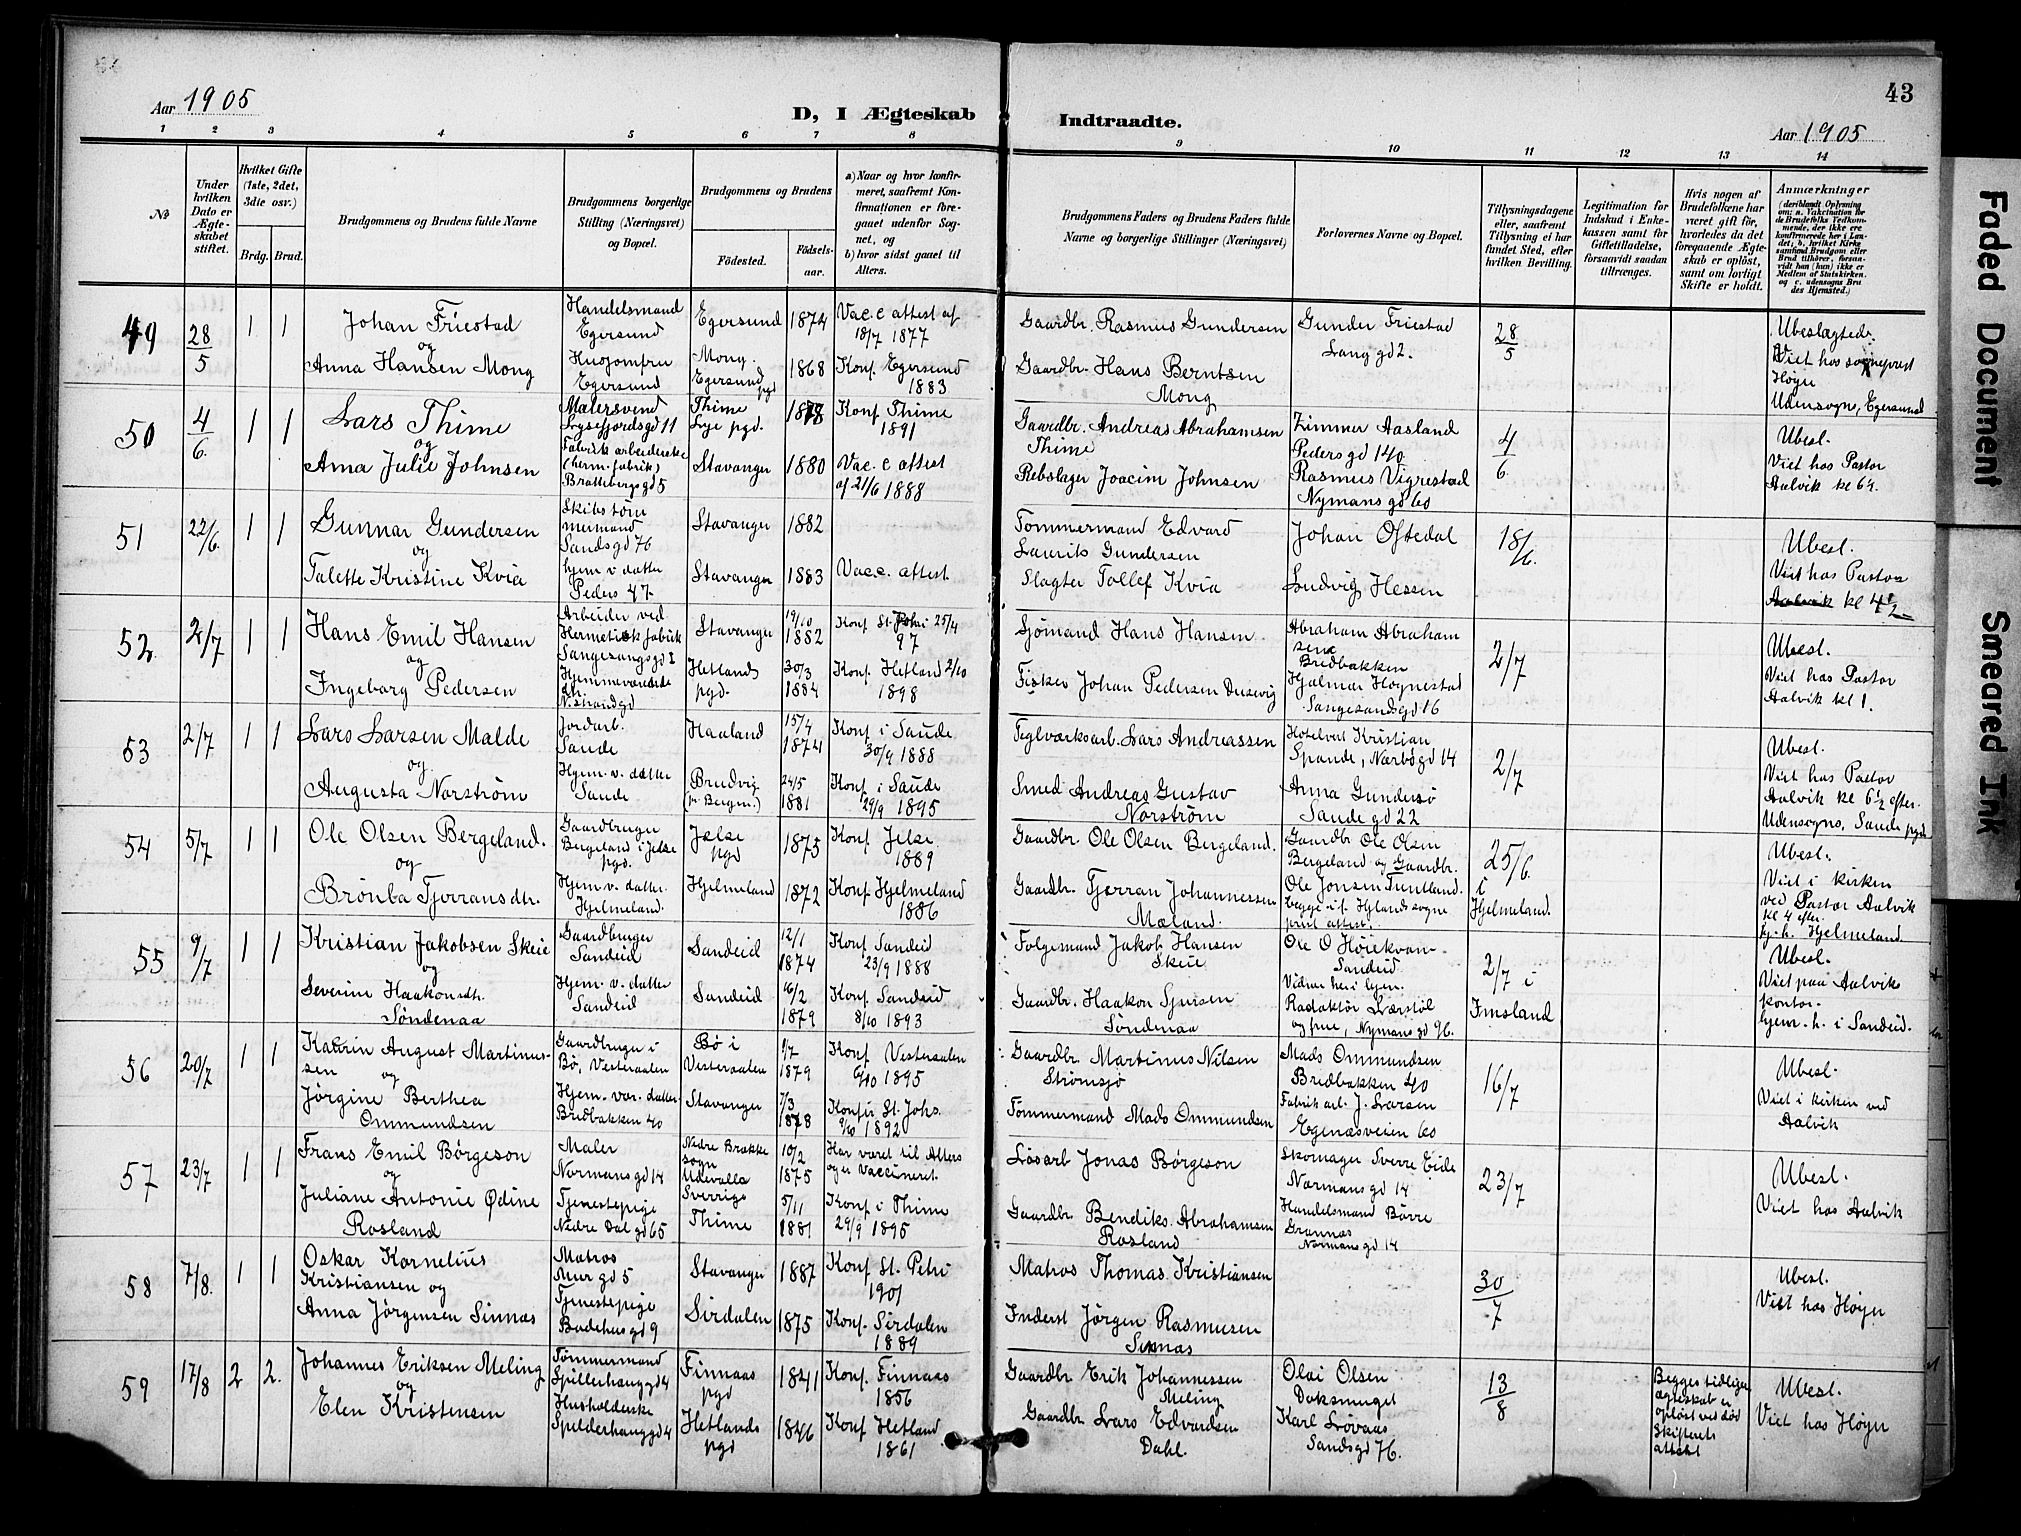 43
Aar 1905
D, I Ægteskab Indtraadte.
Aar 1905
1 2 3 4 5 6 7 8 9 10 11 12 13 14
№
Under hvilken Dato er Ægteskabet stiftet.
Hvilket Gifte (1ste, 2det, 3die osv.)
Brdg. Brud.
Brudgommens og Brudens fulde Navne
Brudgommens borgerlige Stilling (Næringsvei) og Bopæl.
Brudgommens og Brudens
Födested.
Födselsaar.
a) Naar og hvor konfirmeret, saafremt Konfirmationen er foregaaet udenfor Sognet, og
b) hvor sidst gaaet til Alters.
Brudgommens Faders og Brudens Faders fulde Navne og borgerlige Stillinger (Næringsvei)
Forlovernes Navne og Bopæl.
Tillysningsdagene eller, saafremt Tillysning ei har fundet Sted, efter hvilken Bevilling.
Legitimation for Indskud i Enkekassen samt for Giftetilladelse, forsaavidt saadan tiltrænges.
Hvis nogen af Brudefolkene har været gift för, hvorledes da det foregaaende Ægteskab er oplöst, samt om lovligt Skifte er holdt.
Anmærkninger
49 28/5 1 1
Johan Friestad
og
Anna Hansen Mong
Handelsmand
Egersund
Husjomfru
Egersund
Egersund 1874
Mong.
Egersund pgd 1868
Vacc attest af
18/7 1877
Konf. Egersund
1883
Gaardbr. Rasmus Gundersen
Gaardbr. Hans Berntsen
Mong
Gunder Friestad
Lang gd 2.
28/5
Ubeslagtede.
Viet hos sogneprest
Høyer
Udensogns, Egersund
50 4/6. 1 1
Lars Thime
og
Anna Julie Johnsen
Malersvend
Lysefjordsgd 11
Fabrikarbeiderske
(herm. fabrik)
Brattebergsgd 5
Thime
Lye pgd. 1878
Stavanger 1880
Konf Thime
1891
Vacc attest
af 21/6 1888
Gaardbr. Andreas Abrahamsen
Thime
Rebslager Joacim Johnsen
Zimmer Aasland
Pedersgd 140
Rasmus Vigrestad
Nymansgd 60
4/6
Ubesl.
Viet hos Pastor
Aalvik kl 6½.
51 22/6. 1 1
Gunnar Gundersen
og
Talette Kristine Kvia
Skibstømmermand
Sandsgd 76
hjem v datter
Peders 47
Stavanger 1882
Stavanger 1883
Vacc. attest
Tømmermand Edvard
Laurits Gundersen
Slagter Tollef Kvia
Johan Oftedal
Ludvig Hessen
18/6.
Ubesl.
Viet hos Pastor
Aalvik kl 4½
52 2/7 1 1
Hans Emil Hansen
og
Ingeborg Pedersen
Arbeider ved
Hermetiskfabrik
Sangesandsgd 2
Hjemmeværende
dtr.
N. Strandgd
Stavanger 19/10 1882
Hetlands
pgd. 30/3 1884
Konf St. Petri 25/4
97
Konf. Hetland 2/10
1898
Sjømand Hans Hansen
Fisker Johan Pedersen Dusevig
Abraham Abrahamsen
Bredbakken
Hjalmar Høgnestad
Sangesandsgd 16
2/7
Ubesl.
Viet hos Pastor
Aalvik kl 1.
53 2/7 1 1
Lars Larsen Malde
og
Augusta Norstrøm
Jordarb.
Sande
Hjem. v. datter
Sande
Haaland 15/4 1874
Brudvig
(pr Bergen.) 24/5 1881
Konf i Saude
30/9 1888
Konf i Saude
29/9 1895
Teglværksarb. Lars Andreassen
Smed Andreas Gustav
Norstrøm
Hotelvert Kristian
Spande, Nærbøgd 14
Anna Gundersø
Sandegd 22
2/7
Ubesl.
Viet hos Pastor
Aalvik kl 6½ efter.
Udensogns, Sande pgd
54 5/7 1 1
Ole Olsen Bergeland.
og
Brønba Tjerransdtr.
Gaardbruger
Bergeland i Jelse
pgd.
Hjem v. datter.
Hjelmeland.
Jælse
pgd 1875
Hjelmeland 1872
Konf. Jelse.
1889
Konf. Hjelmeland
1886
Gaardbr Ole Olsen Bergeland.
Gaardbr. Tjerran Johannessen
Mæland.
Gaardbr Ole Olsen
Bergeland og Gaardbr.
Ole Jonsen Funtland.
25/6.
i
Hjelmeland.
Ubesl.
Viet i kirken
ved Pastor Aalvik
kl 4 efter.
hj. h. Hjelmeland
55 9/7 1 1
Kristian Jakobsen Skeie
og
Severine Haakonsdtr.
Søndenaa
Gaardbruger
Sandeid
Hjem. v. datter
Sandeid
Sandeid 12/1 1874
Sandeid 16/2 1879
Konf Sandeid
23/9 1888
Konf. Sandeid
8/10 1893
Folgemand Jakob Hansen
Skeie
Gaardbr. Haakon Sjursen
Søndenaa
Ole O Høiekvam
Sandeid
Redaktør Lærstøl
og frue, Nymansgd 96.
2/7 i
Imsland
Ubesl.
Viet paa Aalviks
kontor.
hjem. h. i Sandeid.
56 20/7 1 1
Katrin August Martinussen
og
Jørgine Berthea
Ommundsen
Gaardbruger i
Bø, Vesteraalen
Hjem. vær. datter
Bredbakken 40
Bø i
Vesteraalen 9/7 1879
Stavanger 7/3 1878
Konf Vesteraalen
6/10 1895
Konf i St. Johs.
9/10 1892
Gaardbr. Martinus Nilsen
Strømsjø
Tømmermand Mads Ommundsen
Mads Ommundsen
Bredbakken 40
Fabrik arb. J. Larsen
Egenæsveien 60
16/7
Ubesl.
Viet i kirken ved
Aalvik
57 23/7 1 1
Frans Emil Börgeson
og
Juliane Antonie Ødine
Rosland
Maler
Normansgd 14
Tjenestepige
Nedre Dalgd 65
Nedre Brække
sogn
Udevalla
Sverrige 10/2 1875
Thime 5/11 1881
Har været til Alters
og er vaccineret.
Konf i Thime
29/9 1895
Løsarb Jonas Börgeson
Gaardbr Bendiks Abrahamsen
Rosland
Skomager Sverre Eide
Normansgd 14
Handelsmand Børre
Grannæs
Normansgd 14
23/7
Ubesl.
Viet hos Aalvik
58 7/8. 1 1
Oskar Kornelius
Kristiansen og
Anna Jørgensen Sinnes
Matros
Murgd 5
Tjenestepige
Badehusgd 9
Stavanger 1887
Sirdalen 1875
Konf St. Petri
1901
Konf. Sirdalen
1889
Matros Thomas Kristiansen
Inderst Jørgen Rasmussen
Sinnes
30/7
Ubesl.
Viet hos Høyer
59 17/8 2 2.
Johannes Eriksen Meling
og
Elen Kristensen
Tømmermand
Spilderhauggd 4
Husholderske
Spilderhauggd 4
Finnaas
pgd 1841
Hetlands
pgd 1846
Konf. Finnaas
1856
Konf Hetland
1861
Gaardbr Erik Johannessen
Meling
Gaardbr Lars Edvardsen
Dahl.
Olai Olsen
Doksmuget
Karl Løvaas
Sandsgd 76.
13/8
Begges tidligere
ægteskab er
opløst ved død
Skifterets
attest
Ubesl.
Viet hos Høyer
Faded Document
Smeared Ink